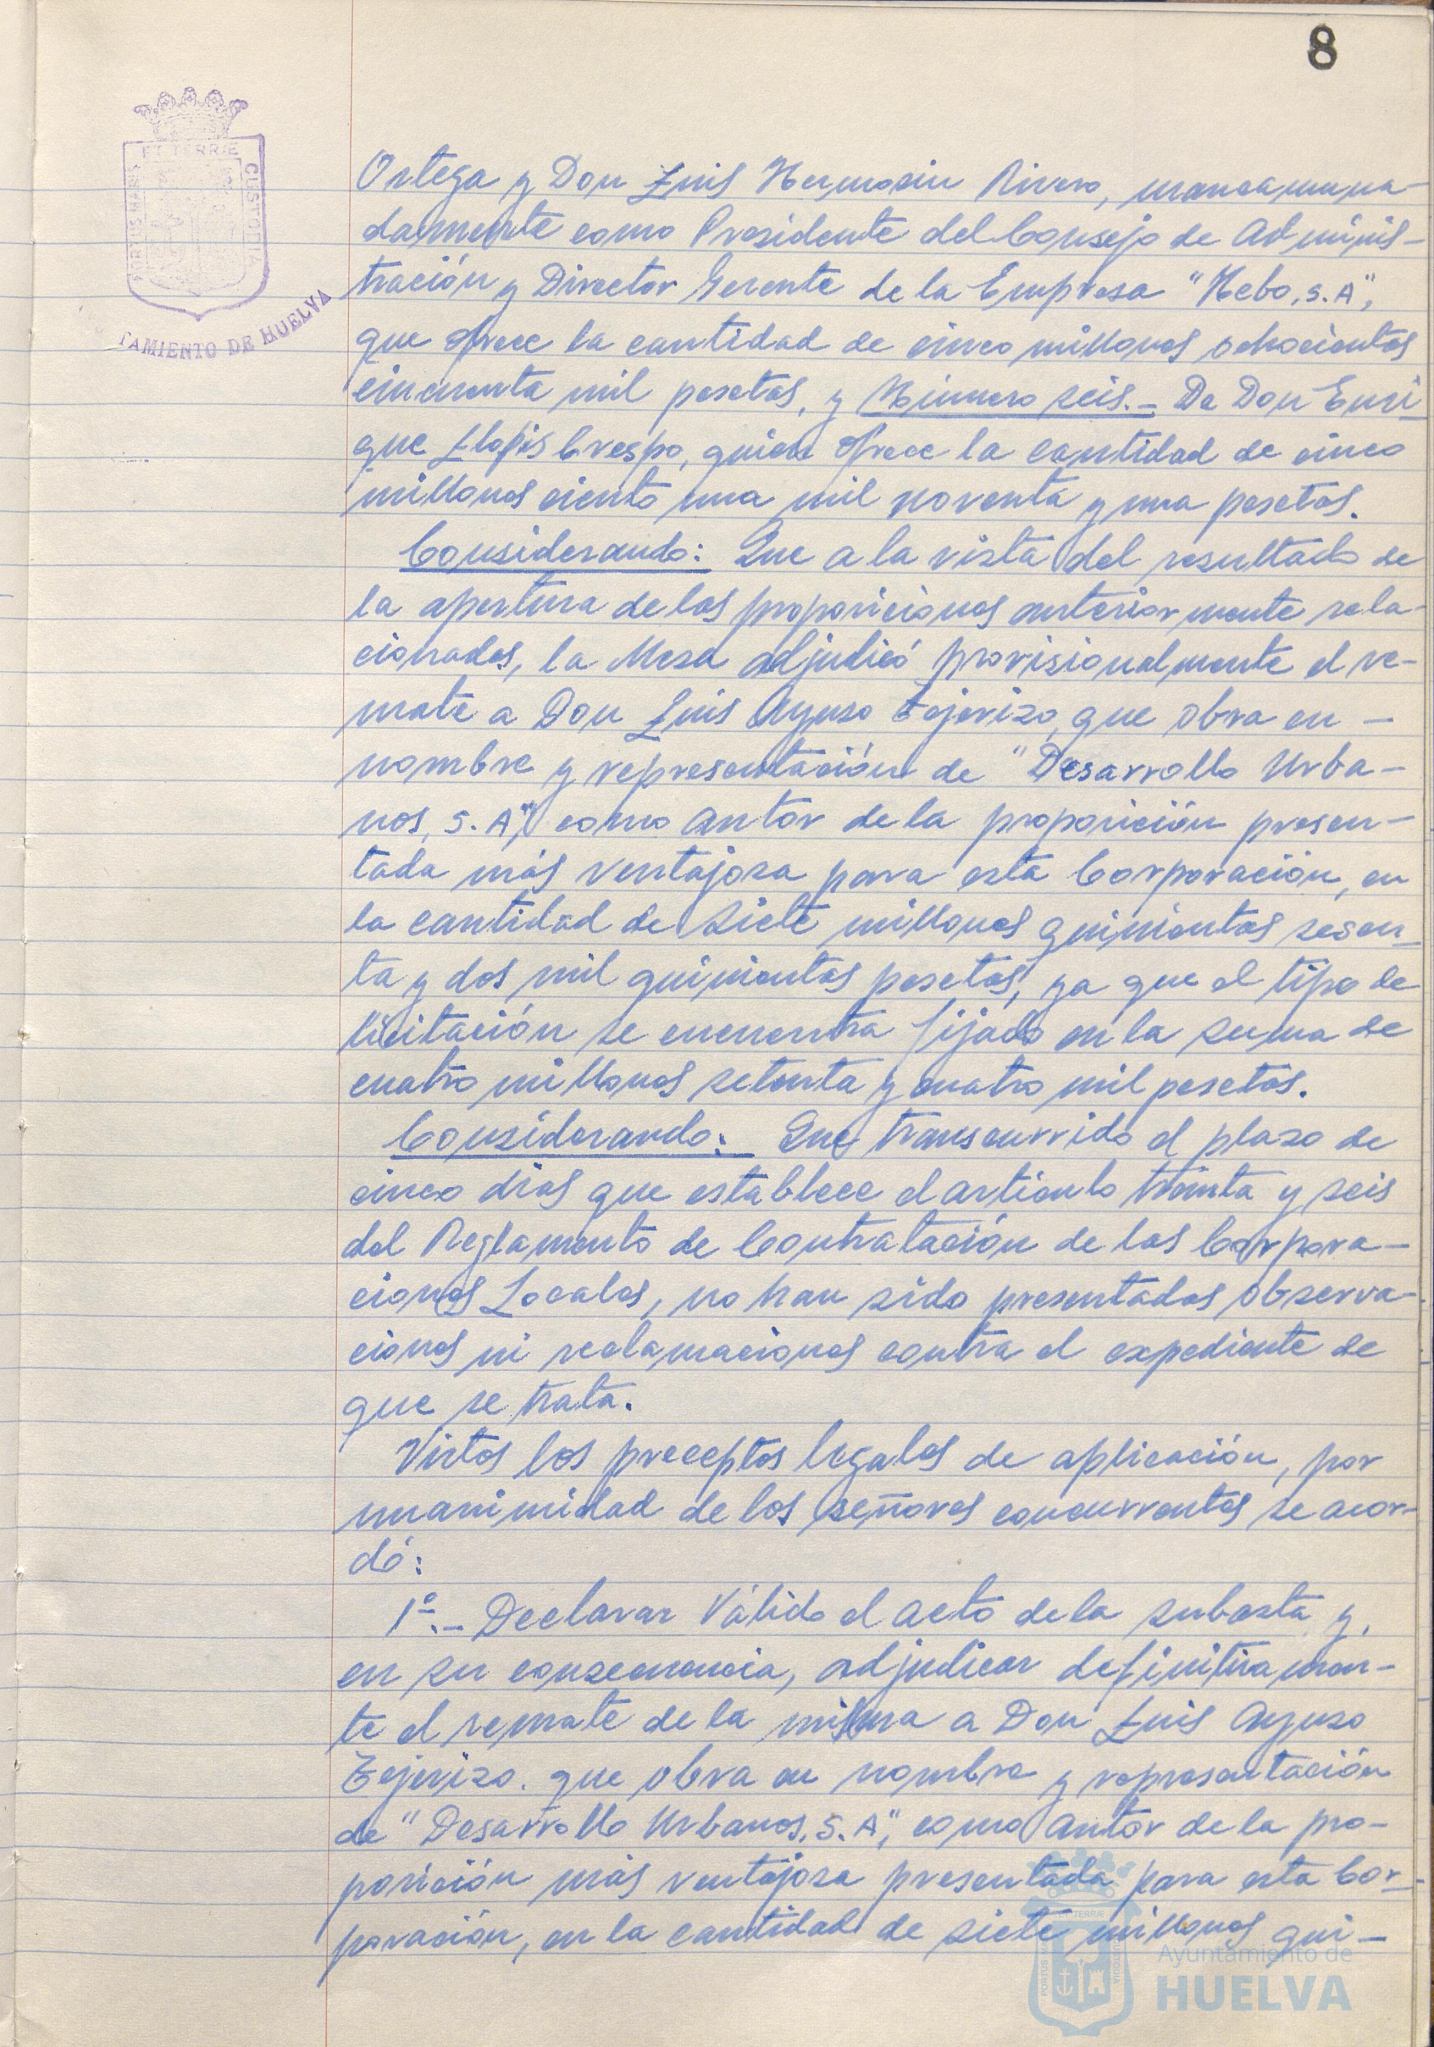 8
PORTUS MARIS
ET TERRÆ
CUSTODIA
TAMIENTO DE HUELVA
Ortega y Don Luis Hermosin Rivero, mancomuna-
damente como Presidente del Consejo de Adminis-
tración y Director Gerente de la Empresa "Hebo, S.A",
que ofrece la cantidad de cinco millones ochocientas
cincuenta mil pesetas, y Número seis.- De Don Enri
que Llopis Crespo, quien ofrece la cantidad de cinco
millones ciento una mil noventa y una pesetas.
Considerando: Que a la vista del resultado de
la apertura de las proposiciones anteriormente rela-
cionadas, la Mesa adjudicó provisionalmente el re-
mate a Don Luis Ayuso Tejerizo, que obra en -
nombre y representación de "Desarrollo Urba-
nos, S.A", como autor de la proposición presen-
tada más ventajosa para esta Corporación, en
la cantidad de siete millones quinientas sesen-
ta y dos mil quinientas pesetas, ya que el tipo de
licitación se encuentra fijado en la suma de
cuatro millones setenta y cuatro mil pesetas.
Considerando: Que transcurrido el plazo de
cinco dias que establece el articulo treinta y seis
del Reglamento de Contratación de las Corpora-
ciones Locales, no han sido presentadas observa-
ciones ni reclamaciones contra el expediente de
que se trata.
Vistos los preceptos legales de aplicación, por
unanimidad de los señores concurrentes se acor-
dó:
1º.- Declarar válido el acto de la subasta y,
en su consecuencia, adjudicar definitivamen-
te el remate de la misma a Don Luis Ayuso
Tejerizo. que obra en nombre y representación
de "Desarrollo Urbanos, S.A", como autor de la pro-
posición más ventajosa presentada para esta Cor-
poración, en la cantidad de siete millones qui-
Ayuntamiento de
HUELVA